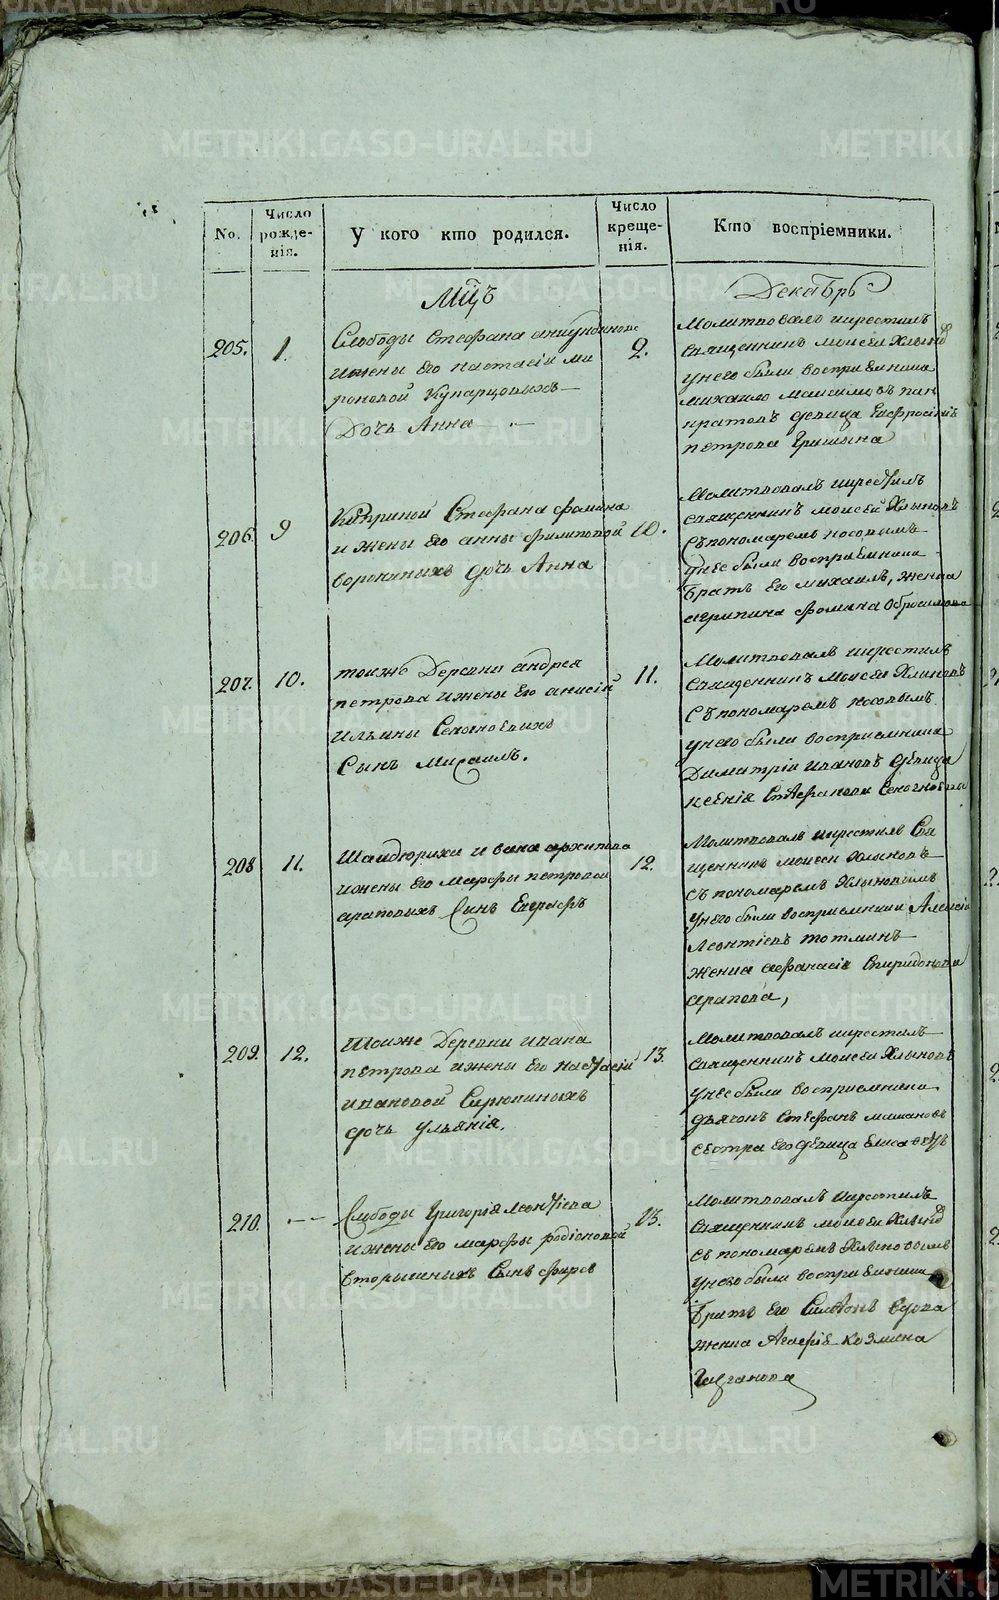 METRIKI.GASO-URAL.RU
No.
Число рожде-нія.
У кого кто родился.
Число креще-нія.
Кто воспріемники.
Мцъ
Декабрь
205.
1.
Слободы Стефана
ижены его настасіи ми
роновой Купарцовыхъ
Дочь Анна
2.
Молитвовалъ икрестилъ
Священникъ моисей Хлыновъ
унего были восприемника
михаило
девица Евфросинія
петрова Гришина
206.
9
Стефана фомина
и жены его анны филиповой
ворониныхъ дочь Анна
10.
Молитвовалъ икрестилъ
Священникъ моисей Хлыновъ
съ пономаремъ носовымъ
унее были восприемники
братъ его михаилъ, женка
агрипина фомина
207.
10.
тоижъ Деревни андрея
петрова ижены его анисіи
ильины
Сынъ Михаилъ.
11.
Молитвовалъ икрестилъ
Священникъ Моисей Хлыновъ
съ пономаремъ носовымъ
унего были восприемника
Димитрій ивановъ девица
ксенія Стефанова
208
11.
Шайдюрихи ивана архипова
ижены его Марфы петровой
араповыхъ Сынъ Евграфъ
12.
Молитвовалъ икрестилъ Свя
щенникъ моисей Хлыновъ
съ пономаремъ Хлыновымъ
унего были восприемники Алексей
Леонтіевъ тотминъ
женка афанасія Спиридонова
арапова,
209.
12.
Тоиже Деревни ивана
петрова ижены его настасіи
ивановой
дочь ульянія.
13.
Молитвовалъ икрестилъ
Священникъ Моисей Хлыновъ
унее были восприемники
дьячокъ Стефанъ
сестра его девица елисаветъ
210.
Слободы Григорія Леонтіева
ижены его марфы родіоновой
вторыгиныхъ Сынъ фирсъ
13.
Молитвовалъ икрестилъ
Священникъ моисей Хлыновъ
съ пономаремъ Хлыновымъ
унего были восприемники
братъ его
женка Агафія козмина
Цыганова